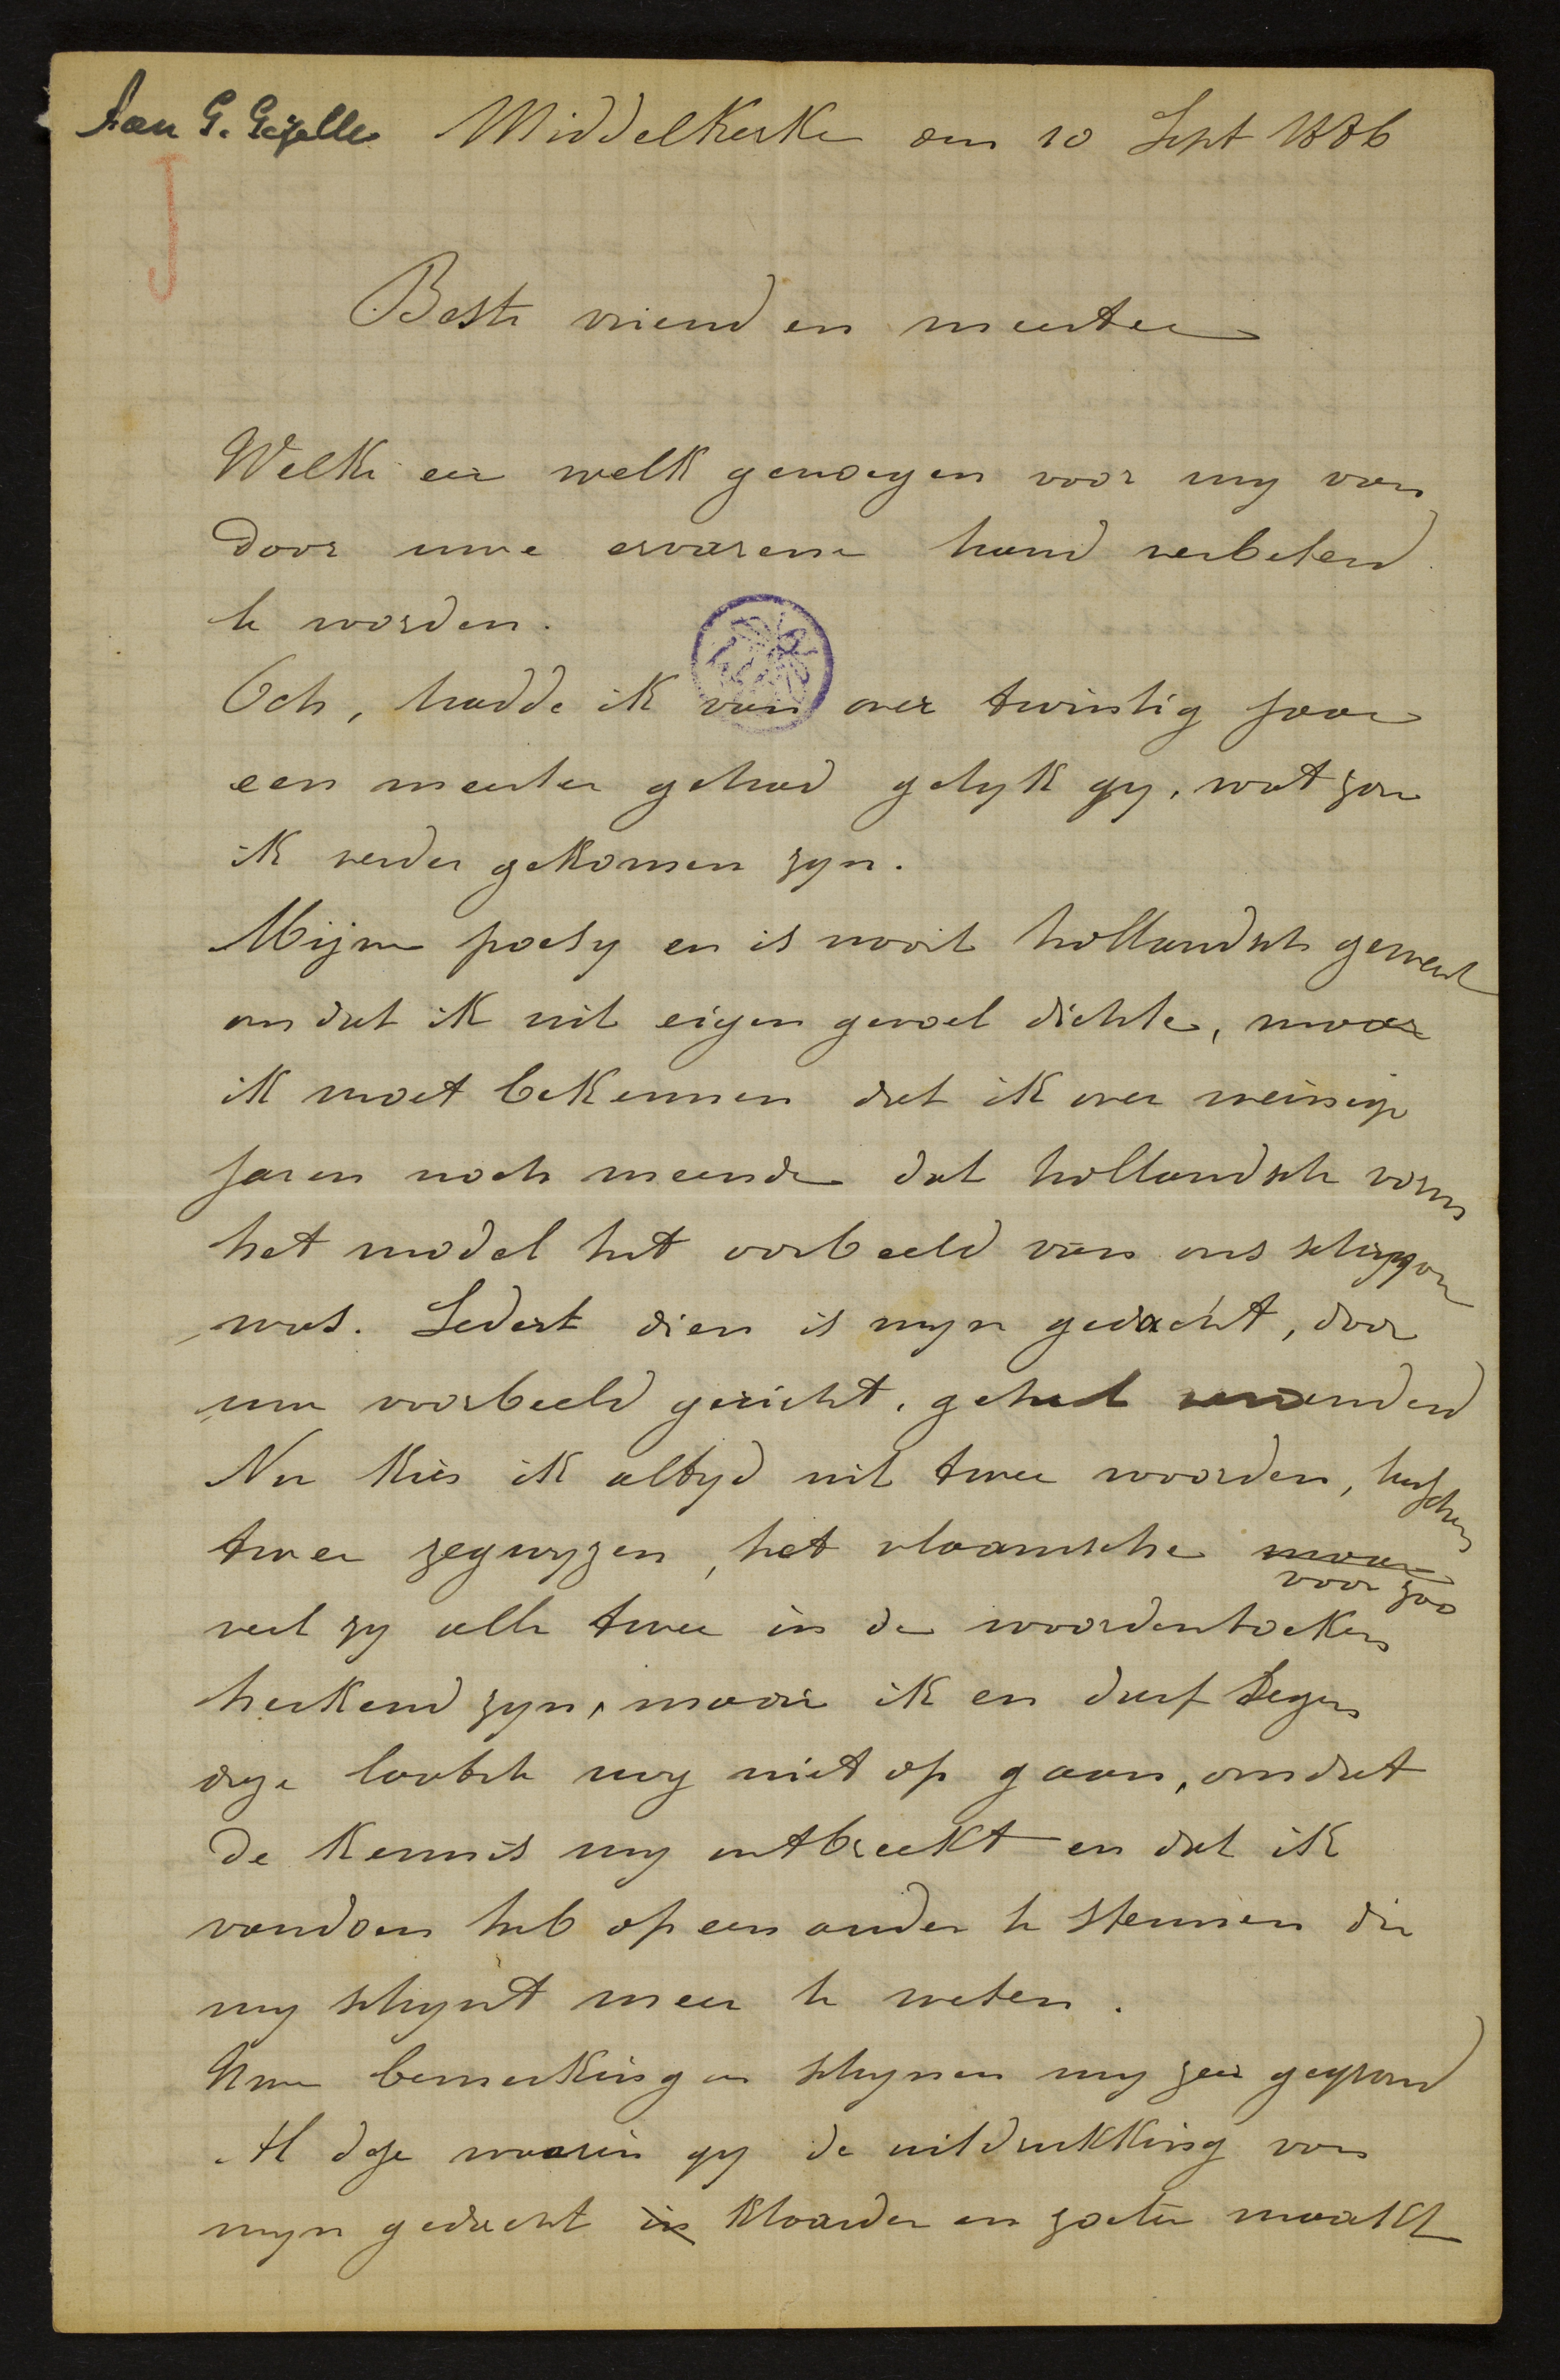 Aan G. Gezelle Middelkerke den 10 Sept 1886
Beste vriend en meester
Welke eer welk genoegen voor my van
door uwe ervarene hand verbeterd
te worden.
Och, hadde ik van over twintig jaar
een meester gehad gelyk gy, wat zou
ik verder gekomen zyn.
Mijne poesy en is nooit hollandsch geweest
omdat ik uit eigen gevoel dichte, maar
ik moet bekennen dat ik over weinige
jaren noch meende dat hollandsche vorm
het model het voorbeeld van ons schryven
was. Sedert dien is myn gedacht, door
uw voorbeeld gericht, geheel veranderd
Nu kies ik altyd uit twee woorden, tusschen
twee zegwyzen, het vlaamsche maar
voor zoo
veel zy alle twee in de woordenboeken
herkend zyn, maar ik en durf tegen
deze laatste my niet op gaan, omdat
de kennis my ontbreekt en dat ik
vandoen heb op een ander te steunen die
my schynt meer te weten.
Uwe bemerkingen schynen my zeer gegrond
Al deze waarin gy de uitdrukking van
myn gedacht in klaarder en zoeter maakt